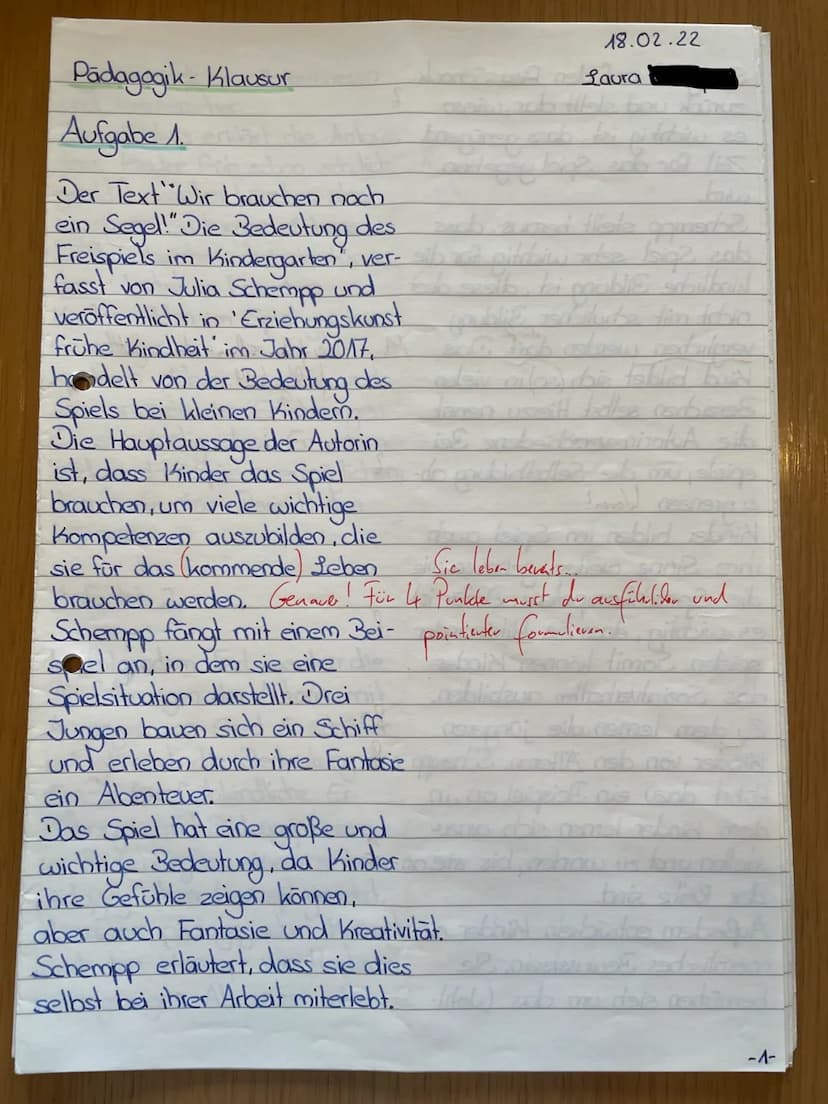 18.02.22
Pädagogik-Klausur
Laura
Aufgabe 1.
Der Text "Wir brauchen noch
ein Segel!" Die Bedeutung des
Freispiels im Kindergarten", ver-
fasst von Julia Schempp und
veröffentlicht in 'Erziehungskunst
frühe Kindheit' im Jahr 2017,
handelt von der Bedeutung des
Spiels bei kleinen Kindern.
Die Hauptaussage der Autorin
ist, dass Kinder das Spiel
brauchen, um viele wichtige
Kompetenzen auszubilden, die
sie für das (kommende) Leben
Sie leben bereits...
brauchen werden.
Genauer! Für 4 Punkte musst du ausführlicher und
pointierter formulieren.
Schempp fängt mit einem Bei-
spiel an, in dem sie eine
Spielsituation darstellt. Drei
Jungen bauen sich ein Schiff
und erleben durch ihre Fantasie
ein Abenteuer.
Das Spiel hat eine große und
wichtige Bedeutung, da Kinder
ihre Gefühle zeigen können,
aber auch Fantasie und Kreativität.
Schempp erläutert, dass sie dies
selbst bei ihrer Arbeit miterlebt.
-1-